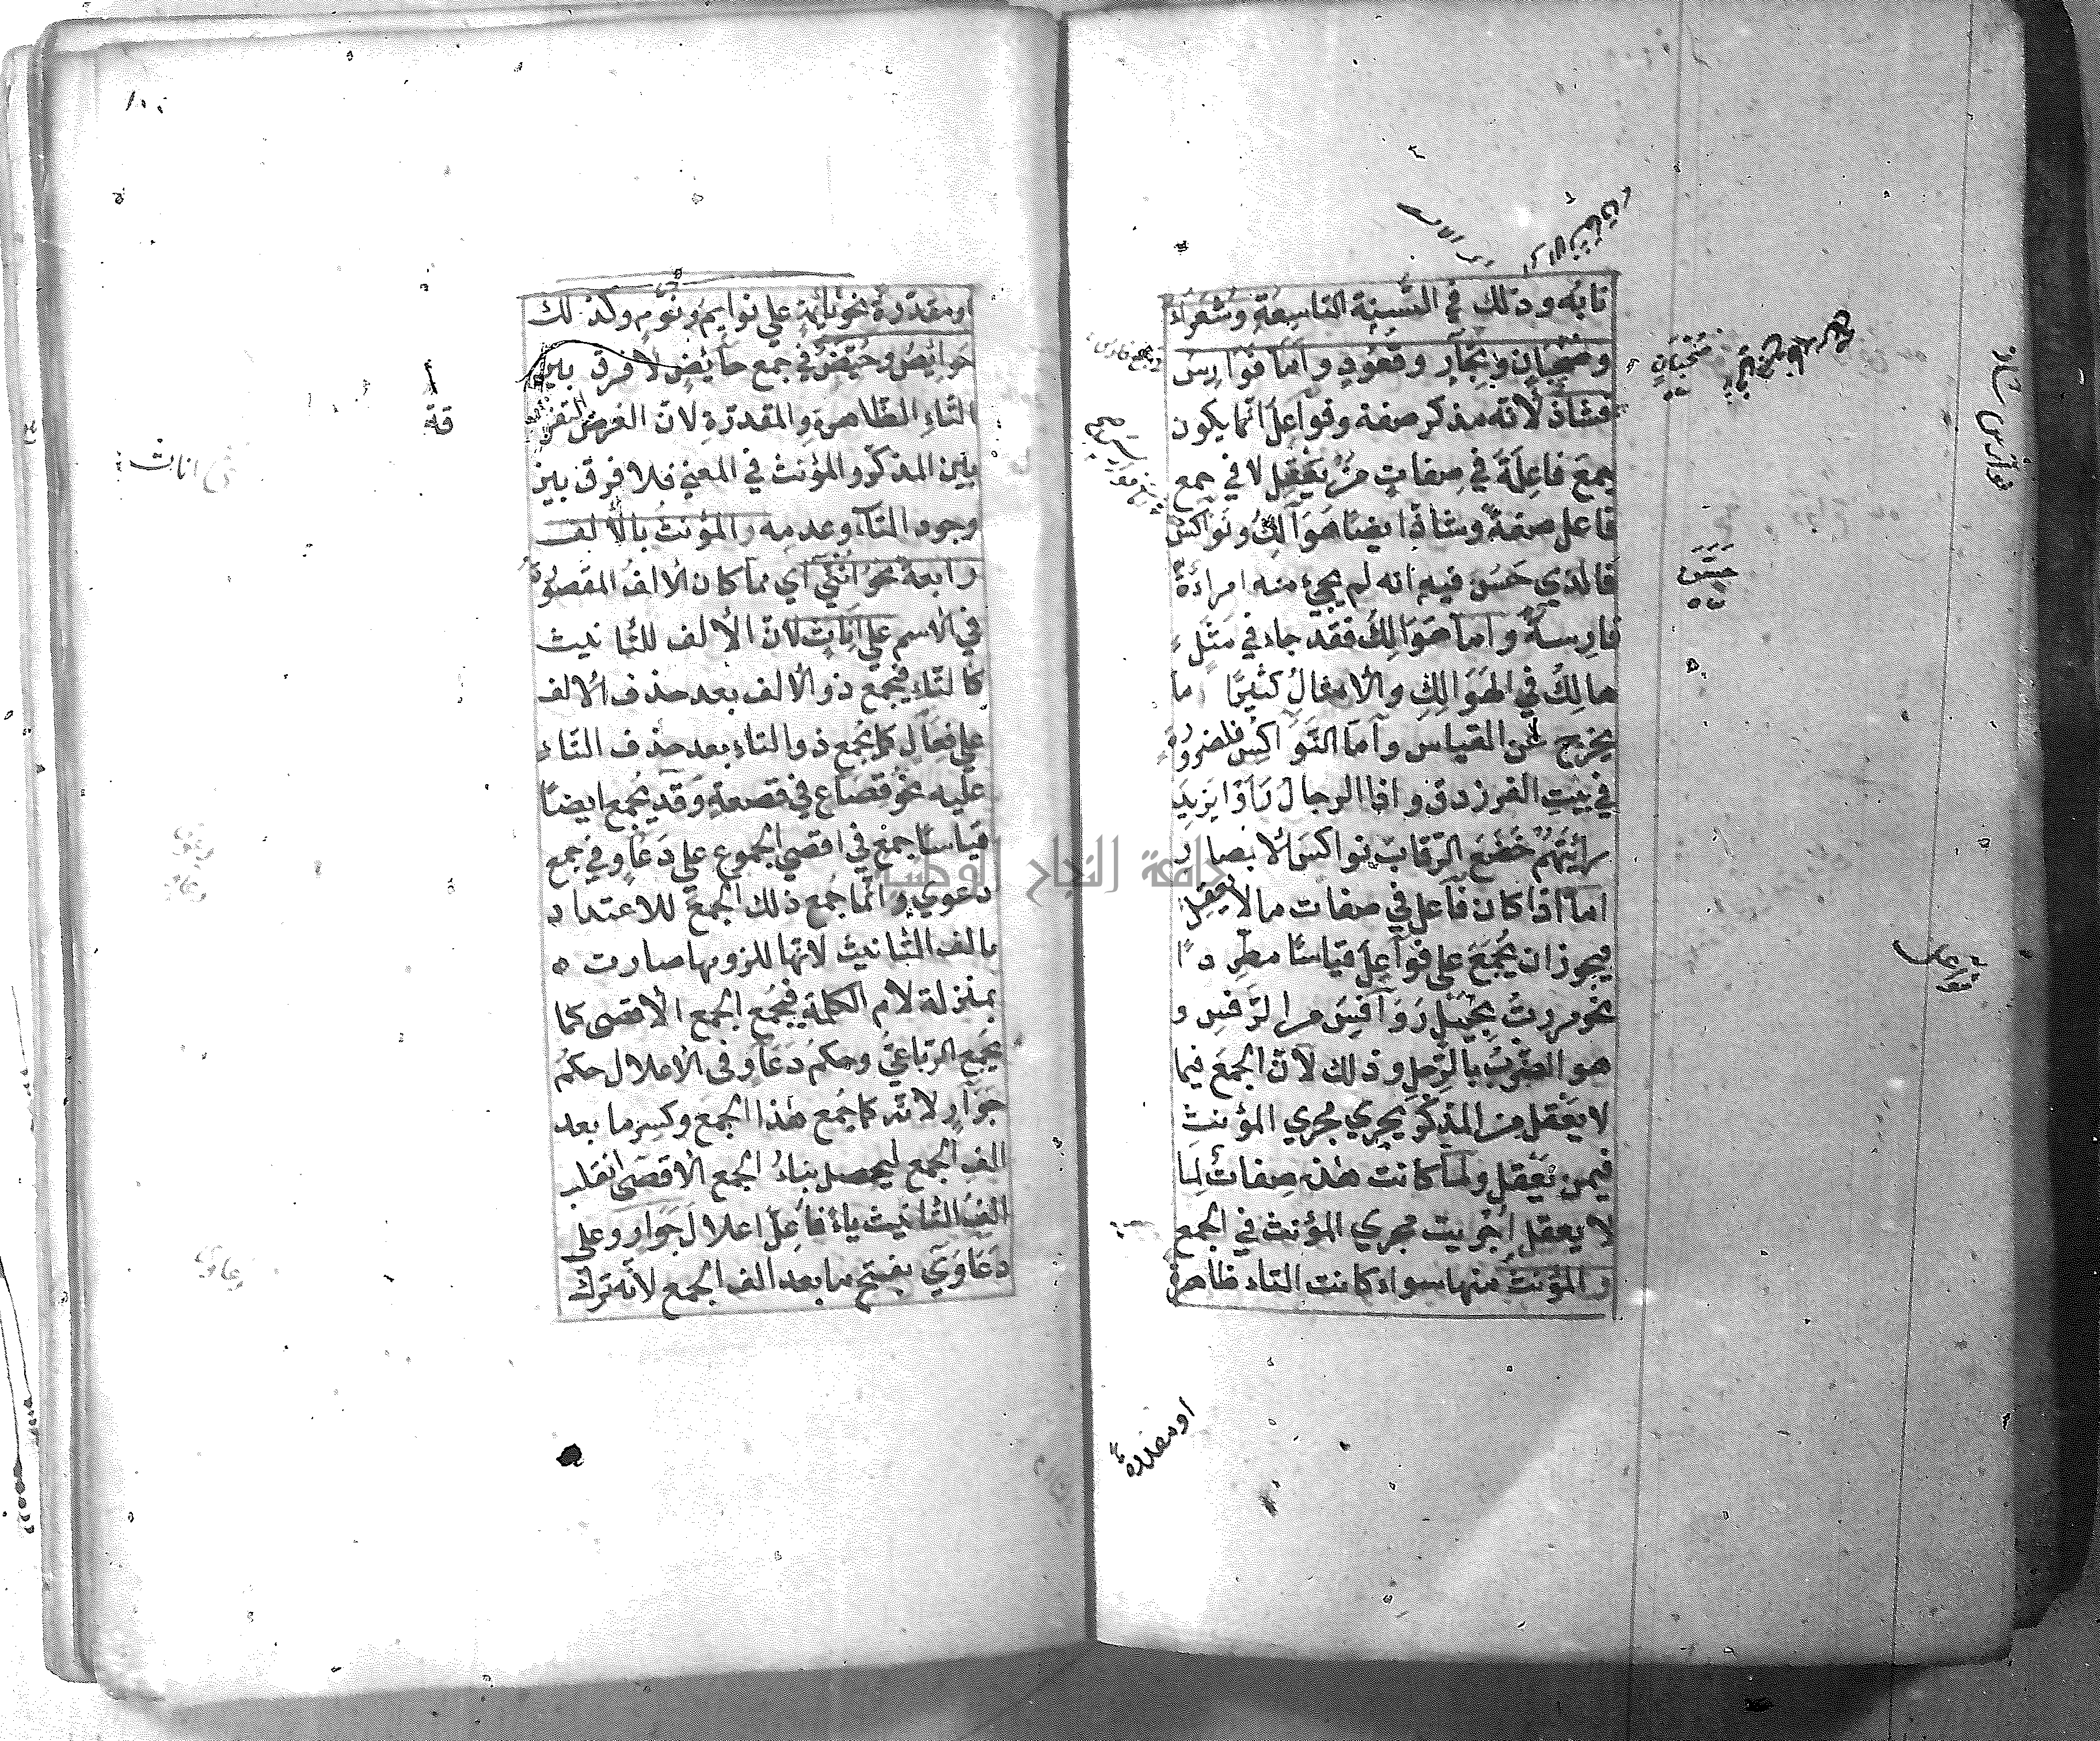 نابُه وذلك في السنة التاسعة وشُعَرَاءَ
وصُحْبَانٍ وتِجَارٍ وقُعُودٍ وأمّا فَوَارِسُ
فشاذّ لأنّه مذكر صفة وفواعل انّما يكون
جمعَ فاعِلَةَ في صفاتٍ مَنْ يَعْقِل لا في جمع
فاعل صفةً وشاذ ايضا هَوَالِكُ ونَوَاكسُ
فالذي حَسَّنَ فيه انه لم يجئ منه امراةٌ
فارِسةٌ واما هَوَالِكُ فقد جاء في مَثَلٍ
هالِكٌ في الهَوَالِكِ والأمثالُ كثيرًا ما
يخرج عن القياس وأمّا النَّوَاكِسُ فلضرورةٍ
في بيتِ الفرزدق واذا الرجال رَأوْا يَزِيدَ
رأيتَهُمْ خُضُعَ الرِّقابِ نواكسَ الأبصار
امّا اذا كان فاعل في صفات ما لا يعقل
فيجوز ان يُجْمَعَ على فَوَاعِلَ قياسًا مطّردًا
نحو مررتُ بخَيْلٍ رَوَافِسَ من الرَّفْسِ و
هو الضَّرْبُ بالرِّجلِ وذلك لأنّ الجمعَ فيما
لا يَعْقل من المذكّر يجري مجري المؤنثِ
فيمن يَعْقل ولمّا كانت هذه صفاتٍ لِما
لا يعقل اُجْرِيت مجري المؤنث في الجمع
والمؤنث منها سواء كانت التاء ظاهرة
او مقدرة
صُحْبَانٍ
حَسَّنَ
او مقدّرة نحو نائِمةٍ على نوايمَ ونُوَّمٍ وكذلك
حَوايِضُ وحُيَّضٌ في جمع حائضٍ لا فرق بين
التاءِ الظاهرةِ والمقدرةِ لانّ الغرض التفر
قة
بين المذكّر والمؤنث في المعنى فلا فرق بين
وجود التاء وعدمه والمؤنثُ بالالف
رابعةً نحو اُنْثَى اي مما كان الألفُ المقصورةُ
في الاسم على اِنَاثٍ لانّ الألف للتأنيث
كالتاءِ فيُجمع ذو الألف بعد حذف الألف
على فِعَالٍ كما يُجمع ذو التاء بعد حذف التاء
عليه نحو قِصَاعٍ في قصعةٍ وقد يُجمع ايضًا
قياسًا جمعٌ في اقصى الجموع على دَعَاوٍ في جمع
دعوي وانّما جُمع ذلك الجمعَ للاعتداد
بالف التأنيث لانّها للزومها صارت
بمنزلة لام الكلمة فيُجمَع الجمع الأقصى كما
يُجمَع الرباعيُّ وحكمُ دَعَاوٍ في الأعلال حكمُ
جَوَارٍ لانّه كما جُمع هذا الجمع وكسر ما بعد
الف الجمع ليحصل بناءُ الجمع الأقصى انقلب
الفُ التأنيث ياءً فاُعِلَّ اعلالَ جَوَارٍ وعلى
دَعَاوَي بفتح ما بعد الف الجمع لأنّه ترك
جامعة النجاح الوطنية